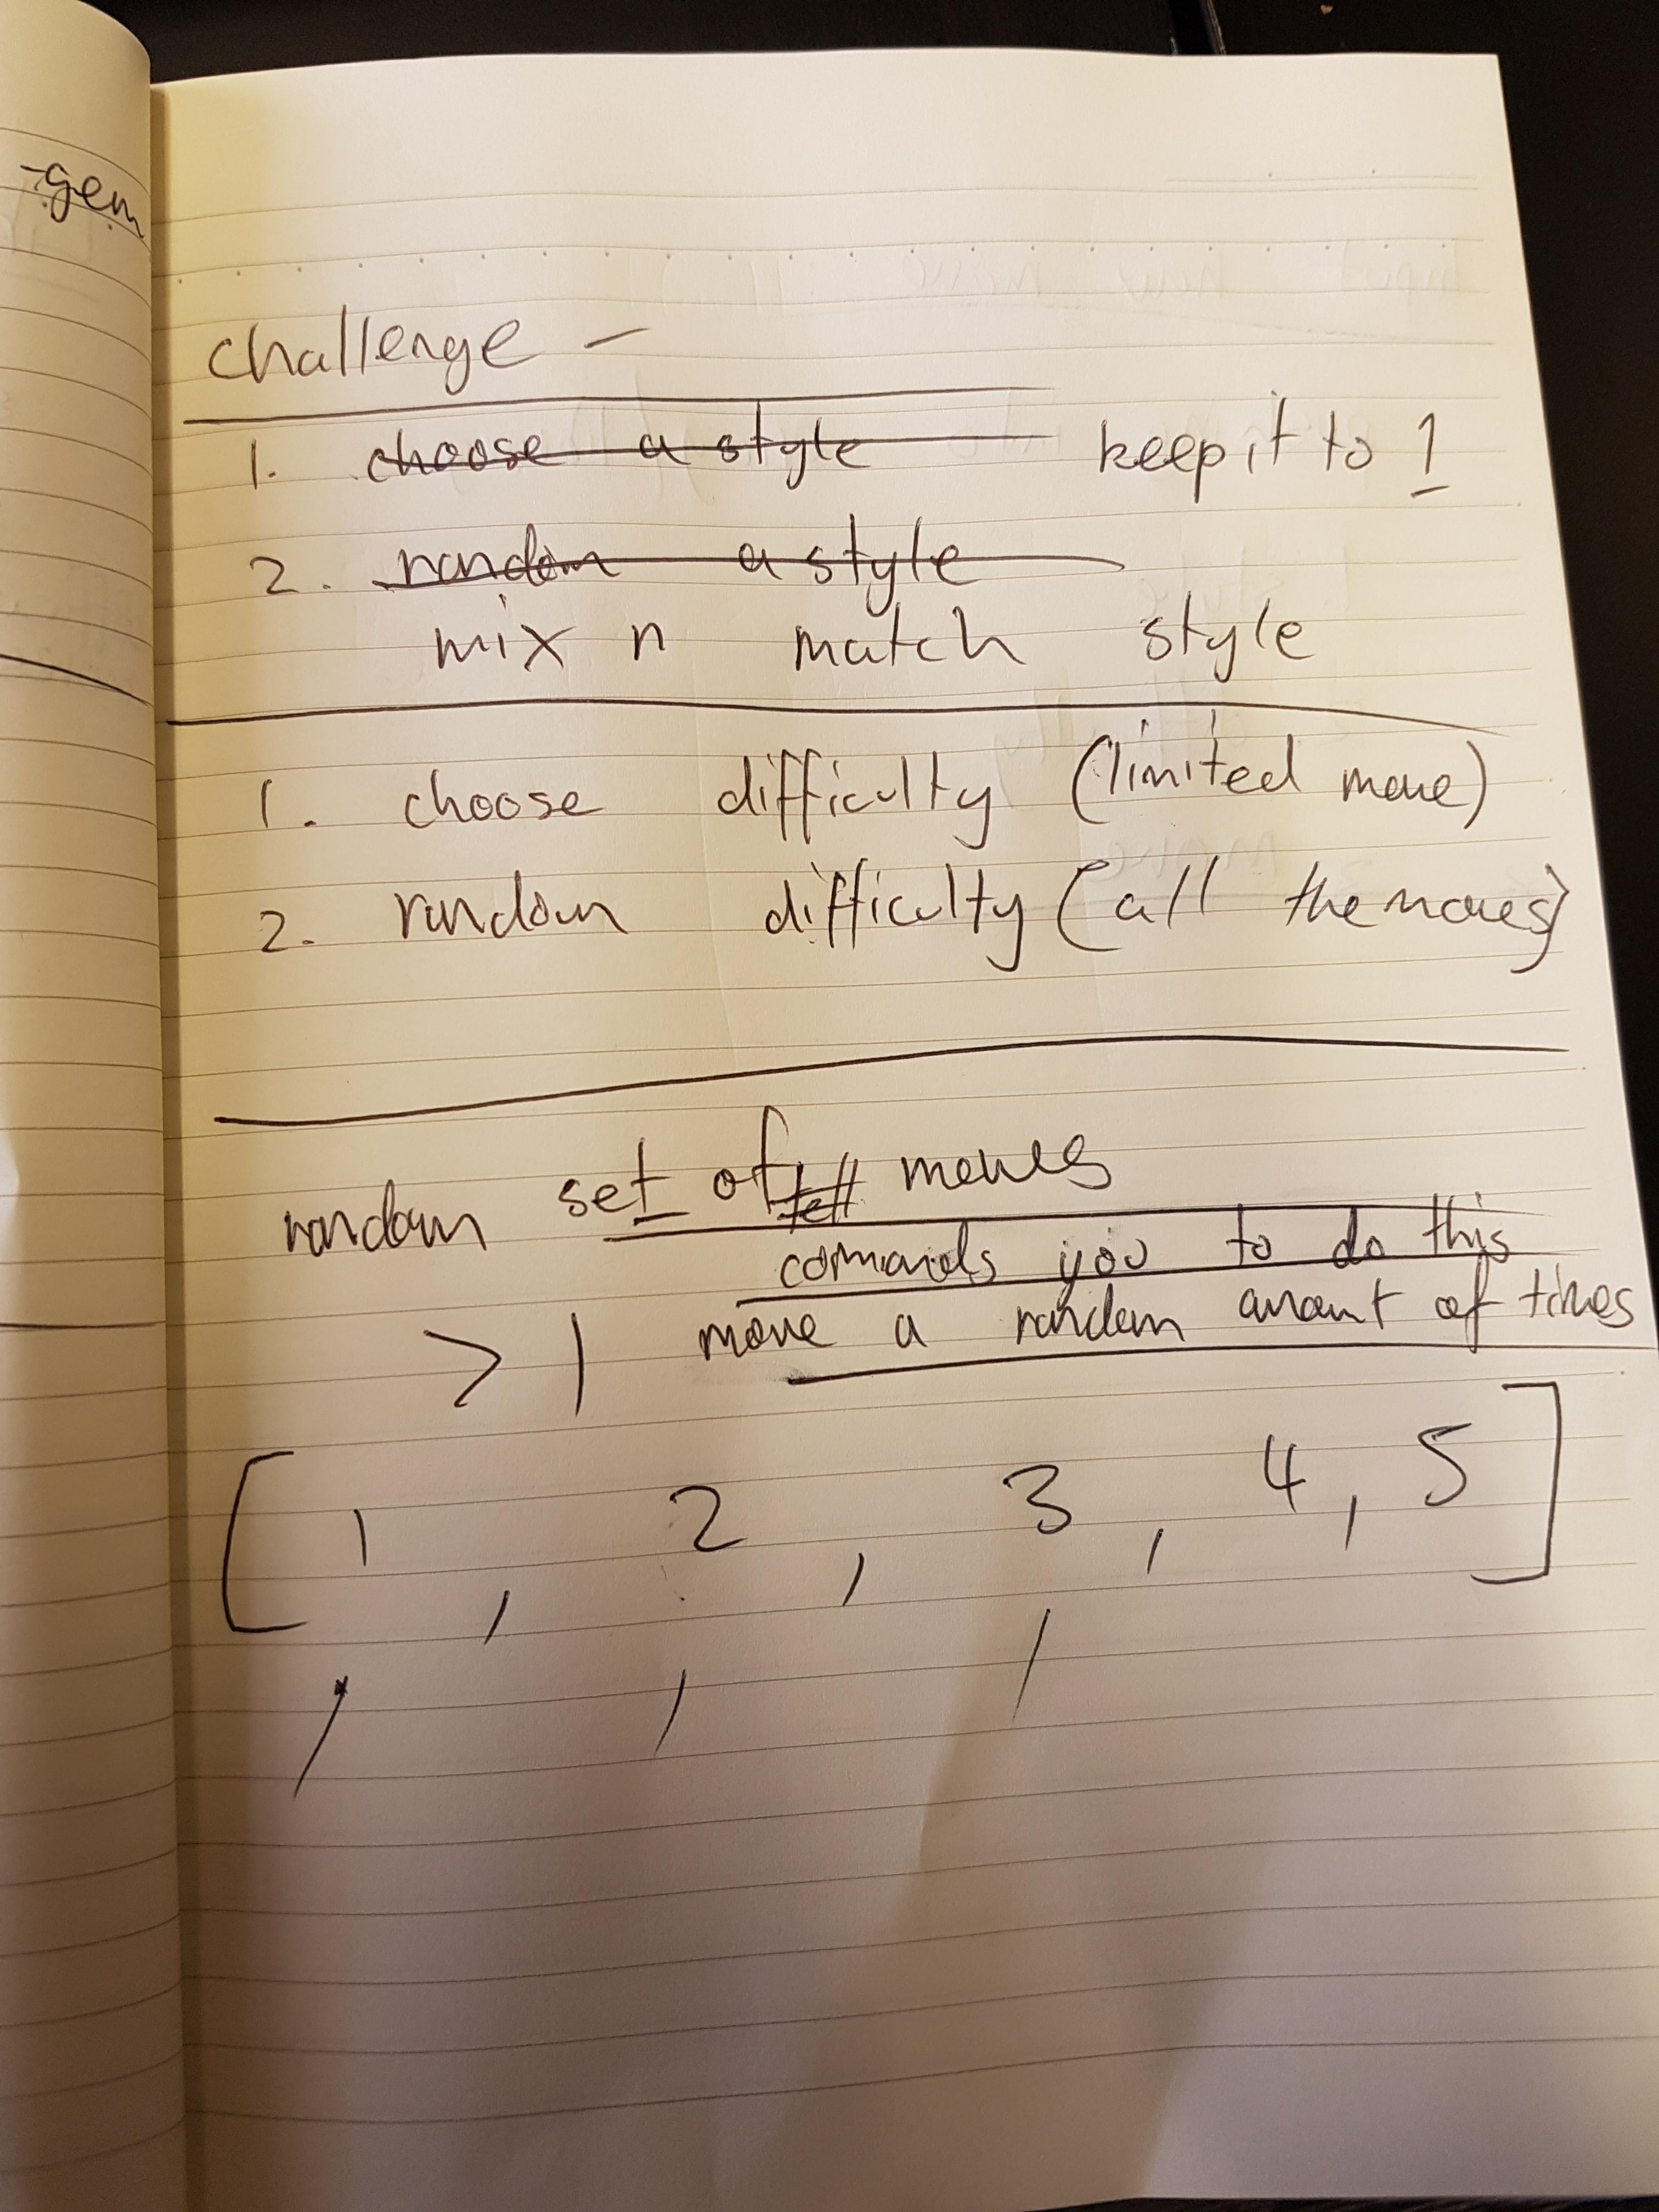 -gem
challenge -
1. choose a style keep it to 1
2. random a style
mix n match style
1. choose difficulty (limited move)
2. random difficulty (all the moves)
random set of tell moves
comands you to do this
> 1 move a random amount of times
[ 1 , 2 , 3 , 4 , 5 ]